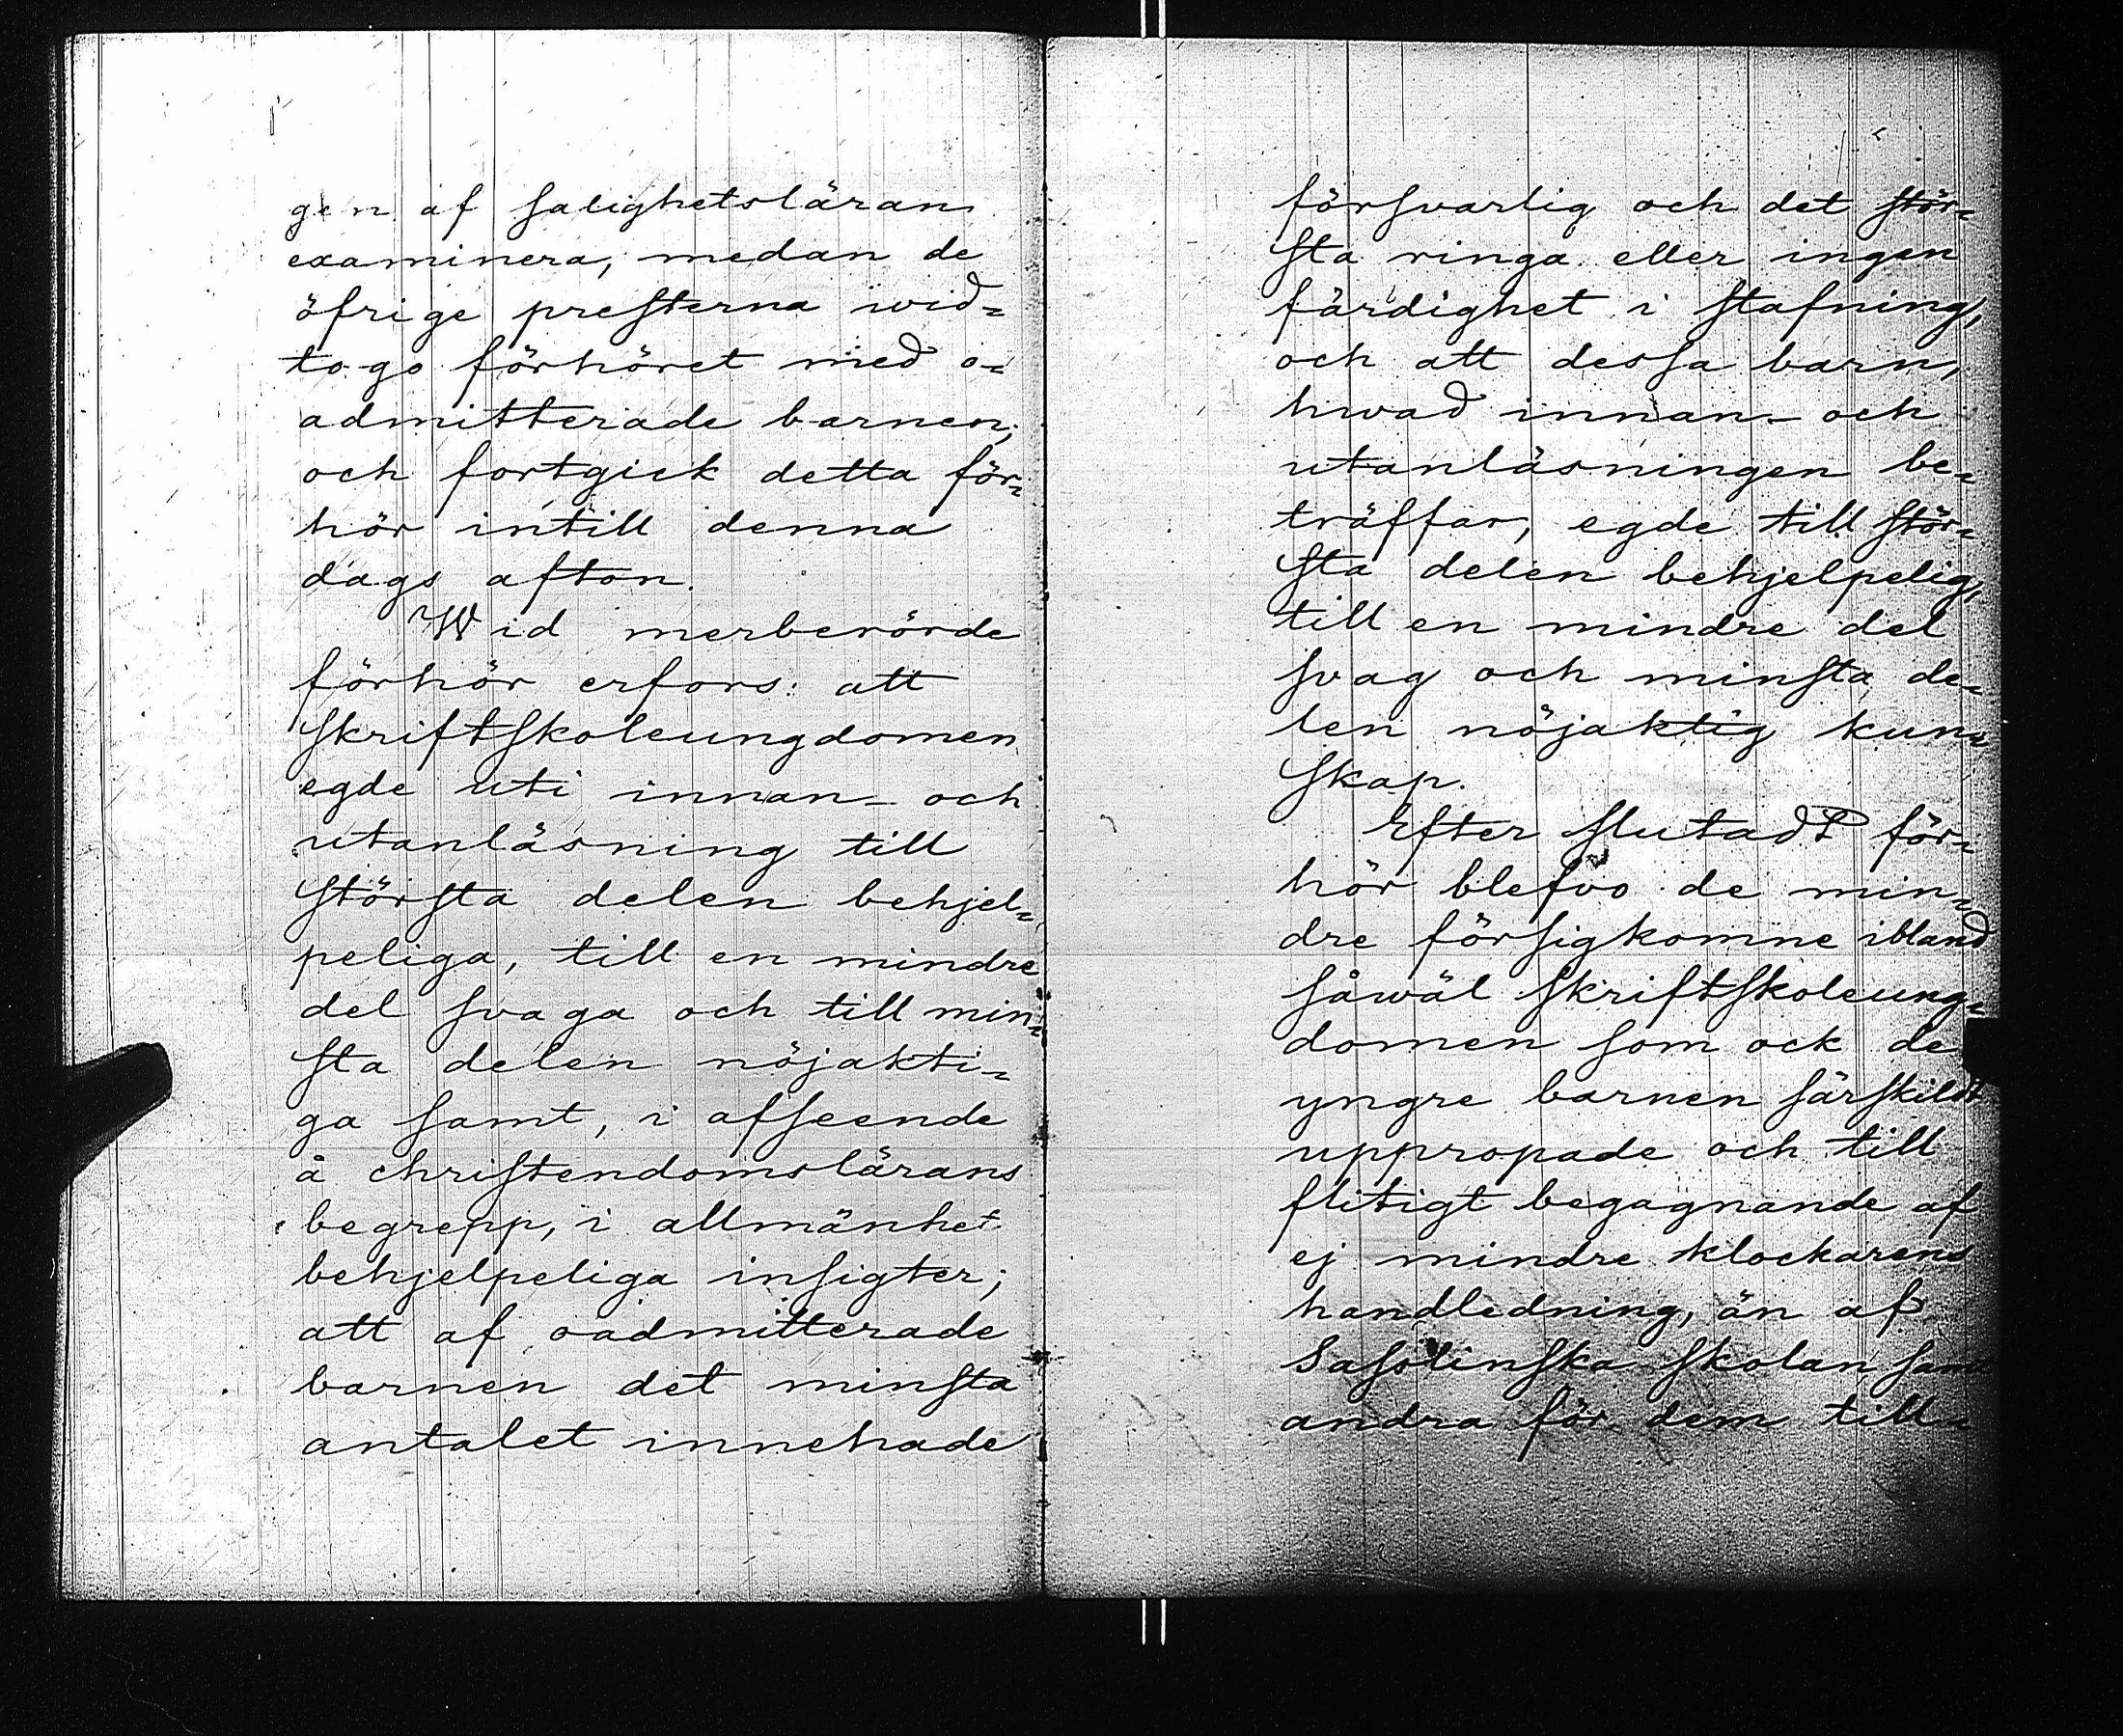 gen af salighetsläran
examinera, medan de
öfrige presterna wid=
togo förhöret med o=
admitterade barnen,
och fortgick detta för=
hör intill denna
dags afton.
Wid merberörde
förhör erfors: att
skriftskoleungdomen
egde uti innan- och
utanläsning till
största delen behjel=
peliga, till en mindre
del svaga och till min=
sta delen nöjakti=
ga samt, i afseende
å christendomslärans
begrepp, i allmänhet
behjelpeliga insigter;
att af oadmitterade
barnen det minsta
antalet innehade
försvarlig och det stör=
sta ringa eller ingen
färdighet i stafning,
och att dessa barn,
hwad innan- och
utanläsningen be=
träffar, egde till stör=
sta delen behjelpelig,
till en mindre del
svag och minsta de=
len nöjaktig kun=
skap.
Efter slutadt för=
hör blefvo de min=
dre försigkomne ibland
såwäl skriftskoleung=
domen som ock de
yngre barnen särskildt
uppropade och till
flitigt begagnande af
ej mindre klockarens
handledning, än af
skolan
andra för dem till=